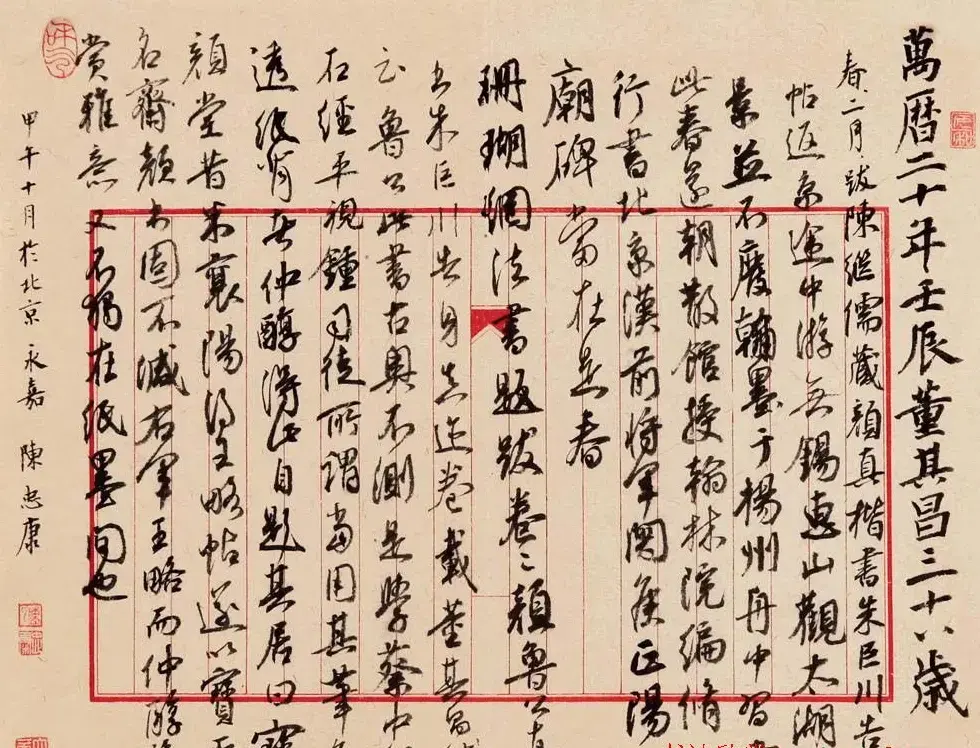 萬曆二十年壬辰董其昌三十八歲
春二月跋陳繼儒藏顏真楷書朱巨川告
帖返京途中游無錫惠山觀太湖
景並不廢翰墨于楊州舟中習
此春還朝散館授翰林院編脩
行書北京漢前將軍關矦正陽
廟碑當在是春
珊瑚網法書題跋卷二顏魯公
書朱巨川告身真迹卷載董其昌
云魯公此書古奧不測是學蔡中
石經平視鍾司徒所謂當用其筆
透紙背者仲醇得此自題其居曰寶
顏堂昔米襄陽得王略帖遂以寶
名齋顏書固不減右軍王略而仲醇
賞雅意又不獨在紙墨間也
甲午十月於北京永嘉陳忠康